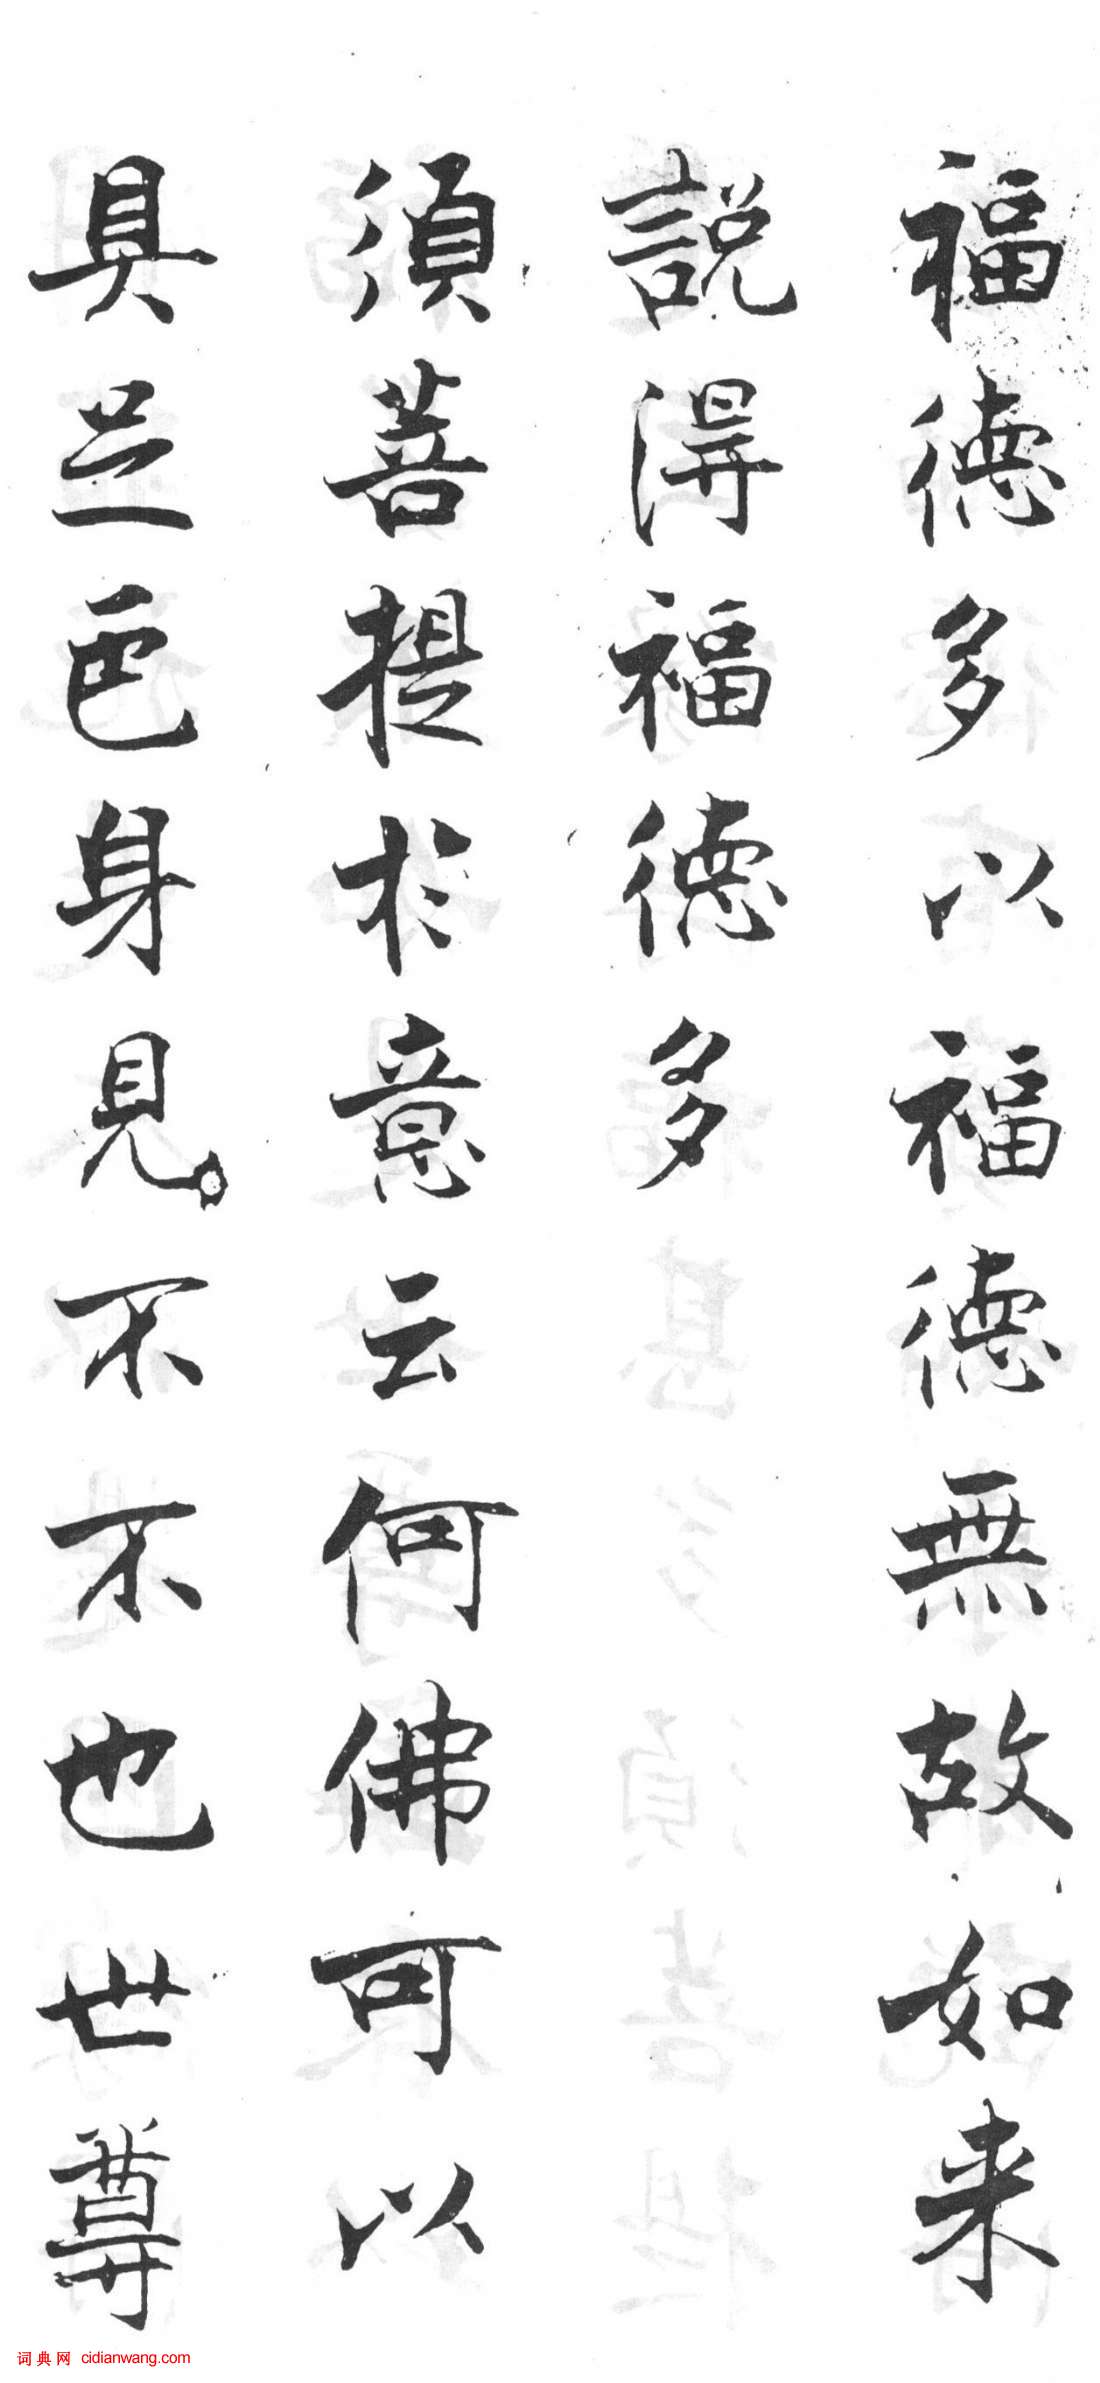 福德多以福德無故如来
説得福德多
須菩提於意云何佛可以
具足色身見不不也世尊
词典网 cidianwang.com